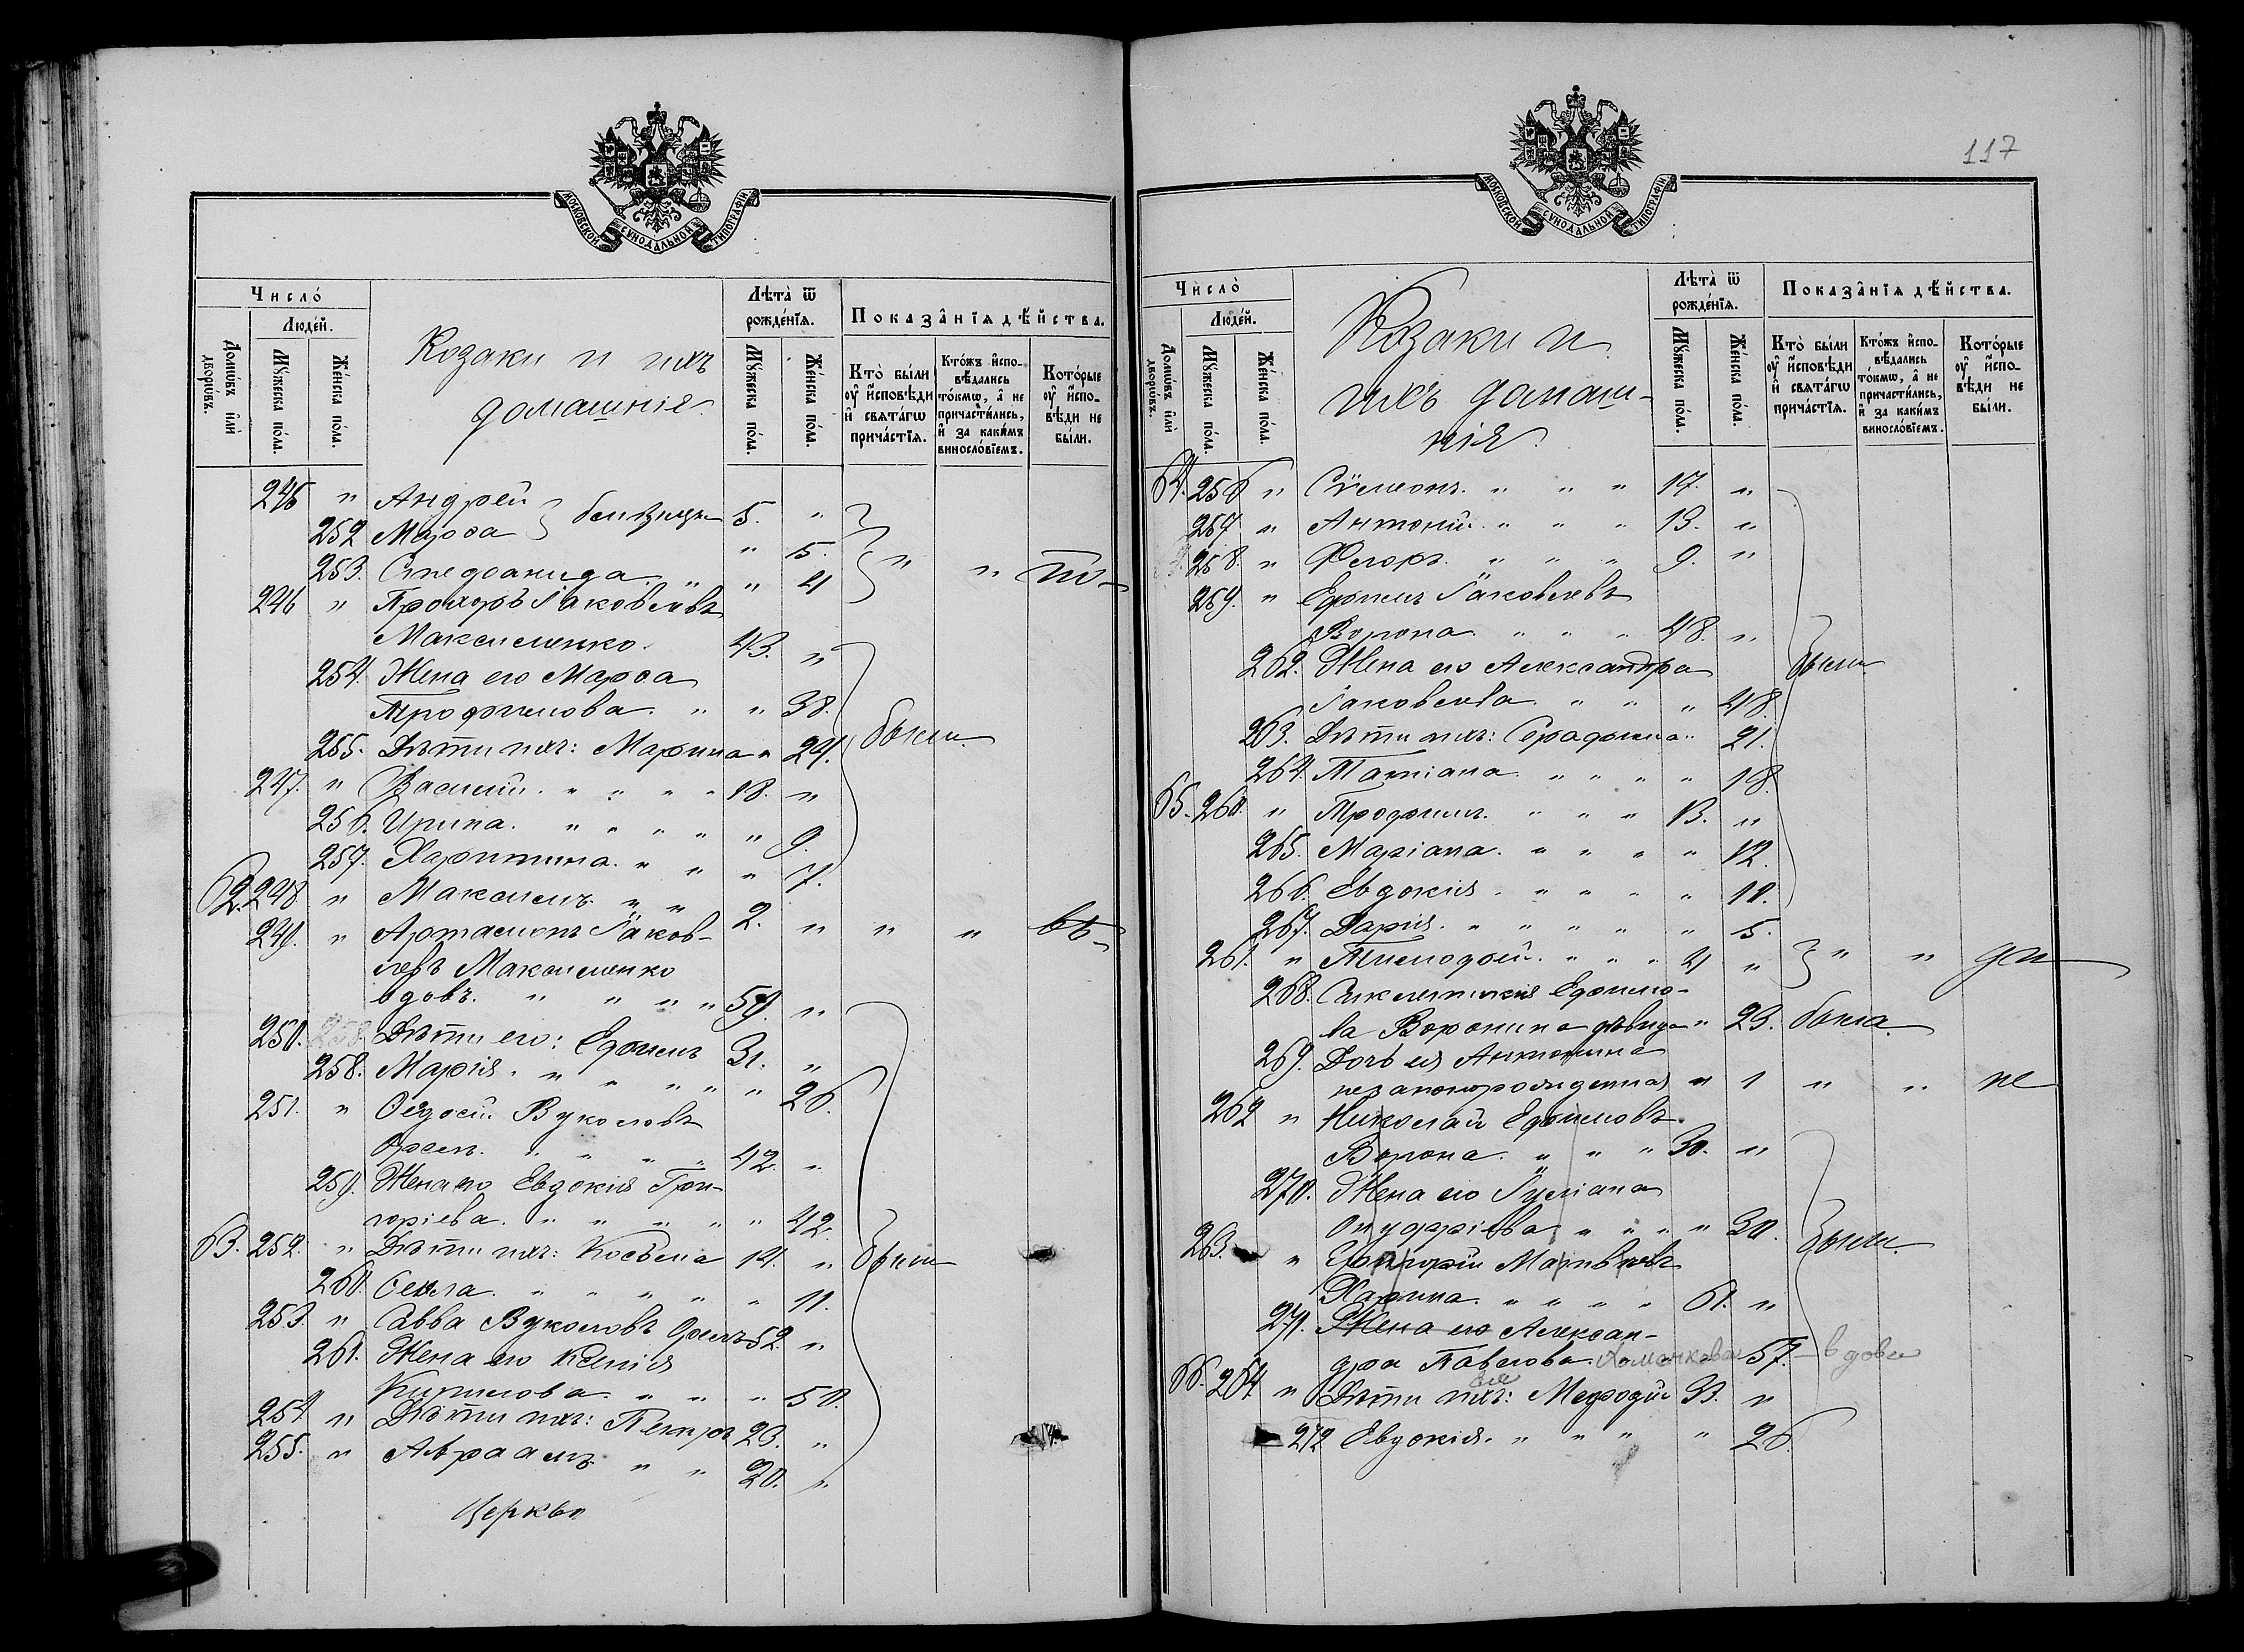 МОСКОВСКОЙ СУНОДАЛЬНОЙ ТИПОГРАФІИ
Число̀
Людей.
Домѡвъ и҆лѝ дворѡ́въ.
Мꙋжеска по́ла.
Же́нска по́ла.
Козаки и ихъ
домашніе.
Лѣта̀ ѿ
рожде́нїѧ.
Мꙋжеска по́ла.
Же́нска по́ла.
Показа̂нїѧ дѣ́йства.
Кто̀ бы́ли ᲂу҆ и҆́сповѣди и҆ свѧта́гѡ прича́стїѧ.
Кто́жъ и҆спо-вѣ́дались то́кмѡ, а҆ не причасти́лись, и҆ за каки́мъ винослѡ́вїемъ.
Кото́рые ᲂу҆ и҆спо-вѣди не бы́ли.
245 " Андрей } близнецы 5. "
252 Марѳа " 5.
253. Степанида " " 4 " " по-
246 " Прохоръ Іаковлевъ
Максименко. 43. "
254. Жена его Марѳа
Трофимова. " " 38.
255. Дѣти ихъ: Марина " 21. были.
247. " Василій. " " " " 18. "
256. Ирина. " " " " " 9.
257. Харитина. " " " " 7.
62. 248 " Максимъ. " " 2. " " " вѣ-
249. " Артамонъ Іаков-
левъ Максименко
вдовъ. " " " " 59. "
250. Дѣти его: Ефимъ 31. "
258. Марія. " " " " " " 26.
251. " Ѳедосій Вуколовъ
Орелъ. " " " " 42. "
259. Жена его Евдокія Гри-
горіева. " " " " " 42.
63. 252. " Дѣти ихъ: Косьма 14. " были
260. Ѳекла. " " " " " 11.
253. " Савва Вуколовъ Орелъ 52. "
261. Жена его Ксенія
Кирилова. " " " 50.
254 " Дѣти ихъ: Петръ 23. "
255. " Авраамъ. " " 20. "
Церкви
117
МОСКОВСКОЙ СУНОДАЛЬНОЙ ТИПОГРАФІИ
Число̀
Людей.
Домѡвъ и҆лѝ дворѡ́въ.
Мꙋжеска по́ла.
Же́нска по́ла.
Козаки и
ихъ домаш-
ніе.
Лѣта̀ ѿ
рожде́нїѧ.
Мꙋжеска по́ла.
Же́нска по́ла.
Показа̂нїѧ дѣ́йства.
Кто̀ бы́ли ᲂу҆ и҆́сповѣди и҆ свѧта́гѡ прича́стїѧ.
Кто́жъ и҆спо-вѣ́дались то́кмѡ, а҆ не причасти́лись, и҆ за каки́мъ винослѡ́вїемъ.
Кото́рые ᲂу҆ и҆спо-вѣди не бы́ли.
64. 256 " Сѷмеонъ. " " " 17. "
257 " Антоній. " " " 13. "
258. " Ѳедоръ. " " " 9. "
259. " Ефимъ Іаковлевъ
Ворона. " " " 48. "
262. Жена его Александра были
Іаковлева. " " " 48.
263. Дѣти ихъ: Серафима " 21.
264. Татіана. " " " " 18.
65. 260. " Трофимъ. " " " 13. "
265. Маріана. " " " " 12.
266. Евдокія. " " " " 10.
267. Дарія. " " " " " 5.
261. " Тимофей. " " " 4 " " " ди
268. Сиклитикія Ефимо-
ва Воронина дѣвица " 23. была.
269. Дочь ея Антонина
незаконорожденная " 1 " " не
262 " Николай Ефимовъ
Ворона. " " " 30. "
270. Жена его Іуліана
Онуфріева " " " " 30. были.
263. " Григорій Матвѣевъ
Харина. " " " " 61. "
271. Жена его Алексан-
дра Павлова. Хоменкова 57. - вдова
66. 264 " Дѣти ихъ: ея Меѳодій 33. "
272 Евдокія. " " " " 26.